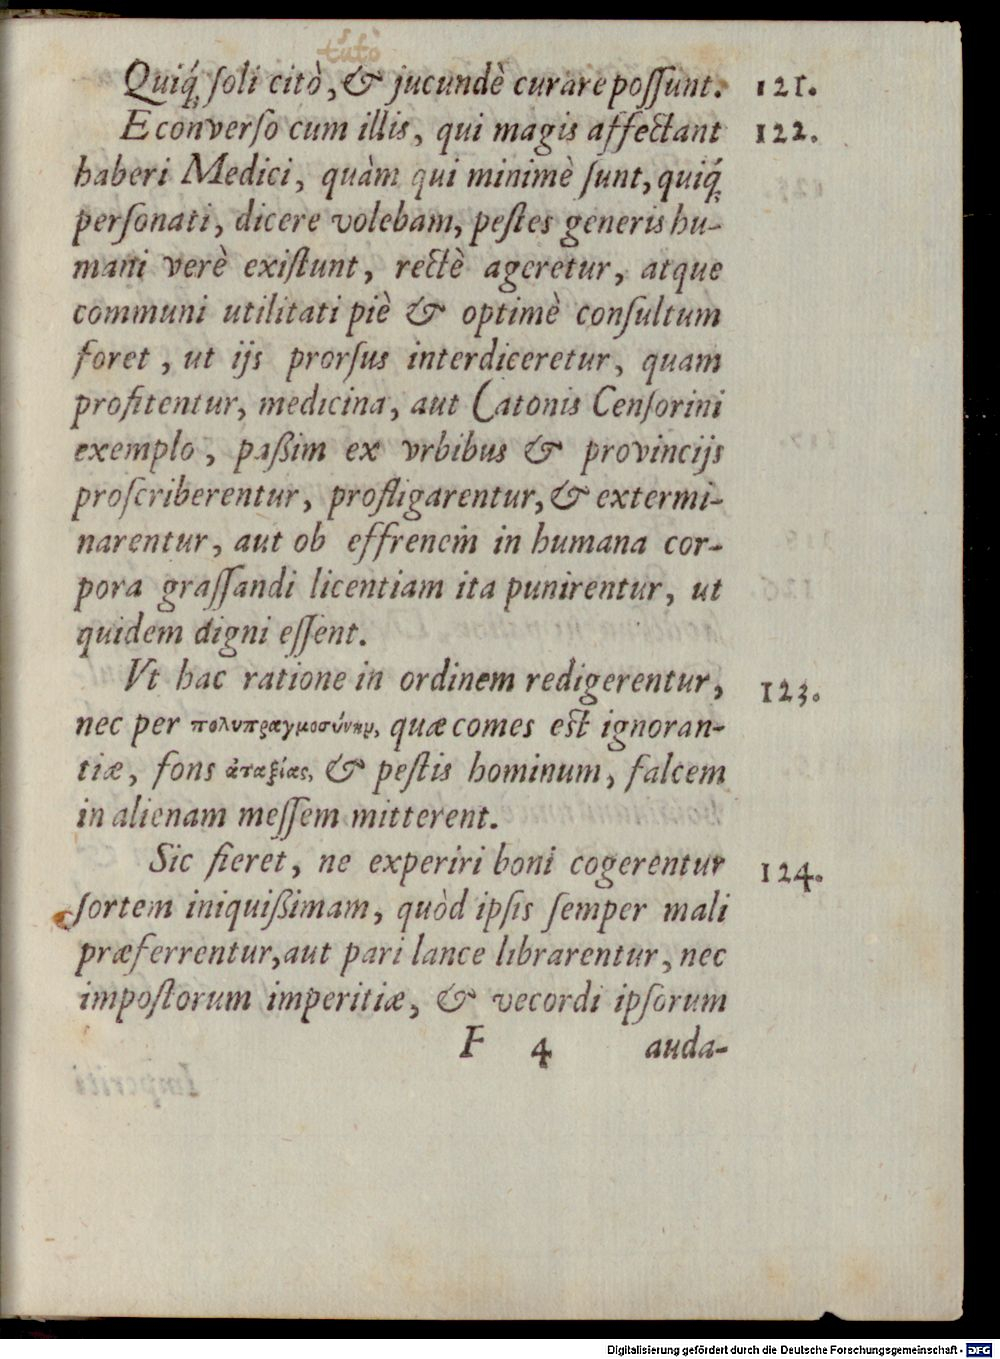 tutò
Quiq́; ſoli citò, & jucundè curare poſſunt. 121.
E converſo cum illis, qui magis affectant 122.
haberi Medici, quàm qui minimè ſunt, quiq́;
perſonati, dicere volebam, peſtes generis hu-
mani verè exiſtunt, rectè ageretur, atque
communi utilitati piè & optimè conſultum
foret, ut ijs prorſus interdiceretur, quam
profitentur, medicina, aut Catonis Cenſorini
exemplo, paßim ex vrbibus & provincijs
proſcriberentur, profligarentur, & extermi-
narentur, aut ob effrenem in humana cor-
pora graſſandi licentiam ita punirentur, ut
quidem digni eſſent.
Vt hac ratione in ordinem redigerentur, 123.
nec per πολυπραγμοσύνην, quæ comes est ignoran-
tiæ, fons ἀταξίας, & peſtis hominum, falcem
in alienam meſſem mitterent.
Sic fieret, ne experiri boni cogerentur 124.
ſortem iniquißimam, quòd ipſis ſemper mali
præferrentur, aut pari lance librarentur, nec
impoſtorum imperitiæ, & vecordi ipſorum
F 4 auda-
Digitalisierung gefördert durch die Deutsche Forschungsgemeinschaft - DFG